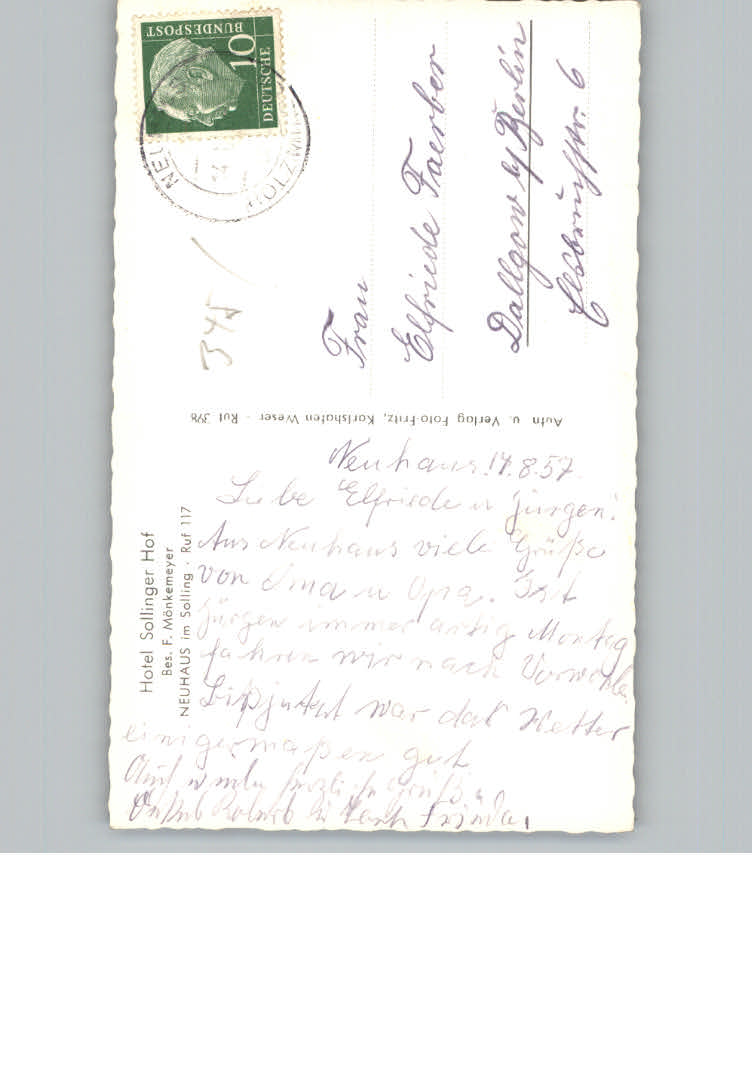 DEUTSCHE
BUNDESPOST
10
NEU
HOLZMIN
345
Frau
Elfriede Faerber
Dallgow b/Berlin
6
Aufn u. Verlag Foto-Fritz, Karlshafen Weser - Ruf 398
Hotel Sollinger Hof
Bes. F. Mönkemeyer
NEUHAUS im Solling · Ruf 117
Neuhaus 17.8.57.
Liebe Elfriede u Jürgen!
Aus Neuhaus viele Grüße
von Oma u Opa. Ist
Jürgen immer artig Montag
fahren wir nach Vorwohle
Bis jetzt war das Wetter
einigermaßen gut
Auch
Onkel u Tante Frieda.